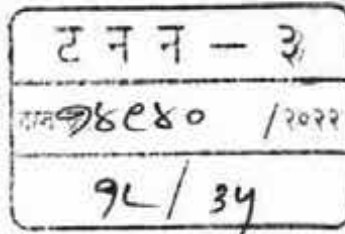 ट न न - ३
१४९४० /२०२२
१८/३५